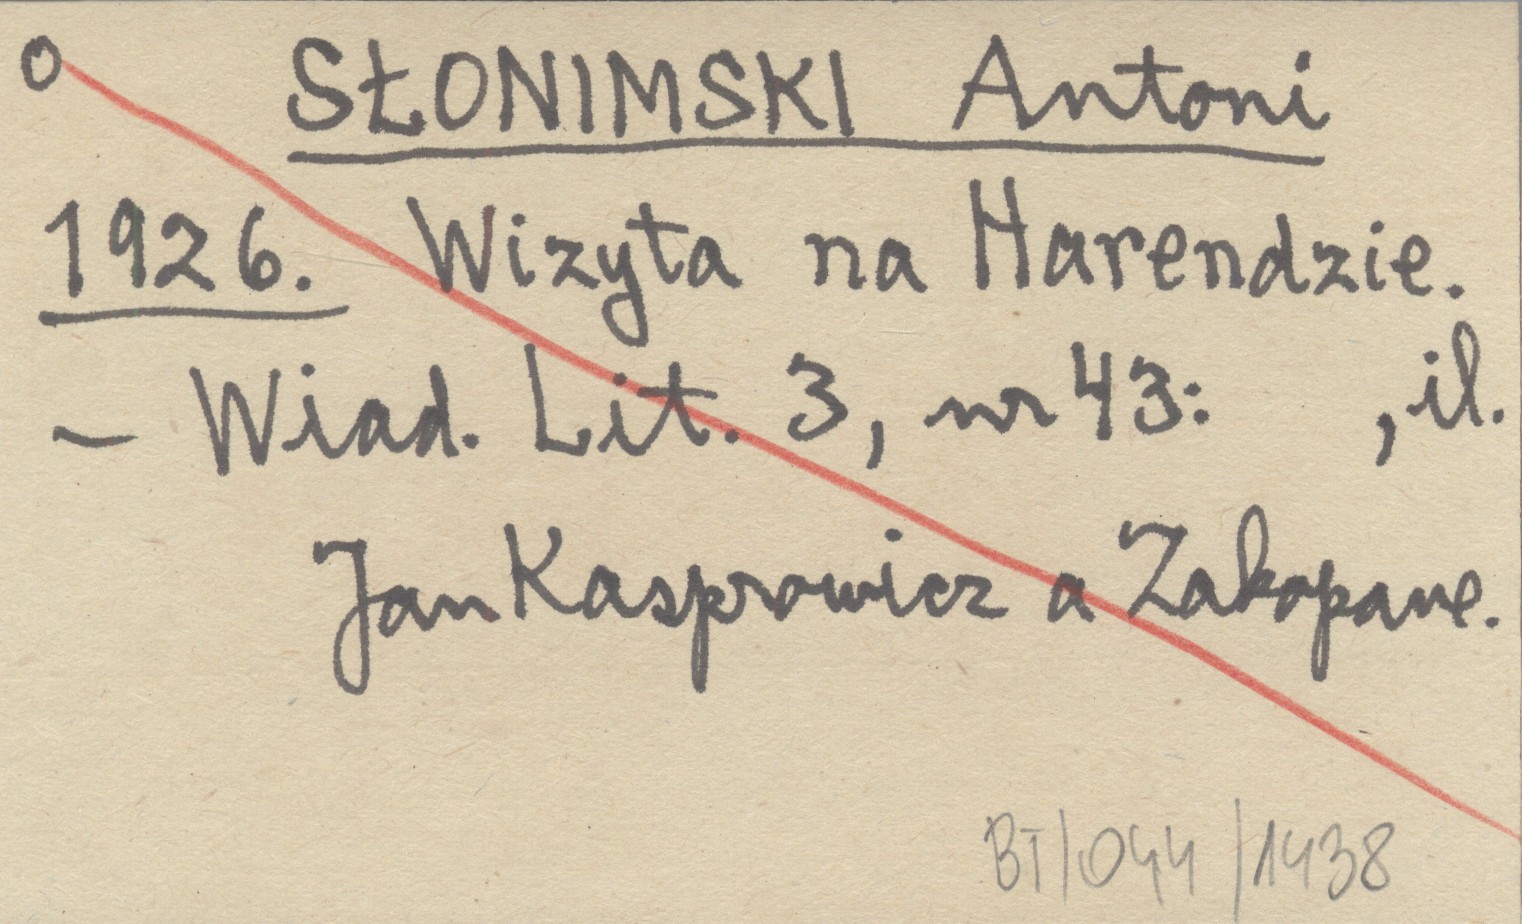 o SŁONIMSKI Antoni
1926. Wizyta na Harendzie.
– Wiad. Lit. 3, nr 43: , il.
Jan Kasprowicz a Zakopane.
BT/044/1438